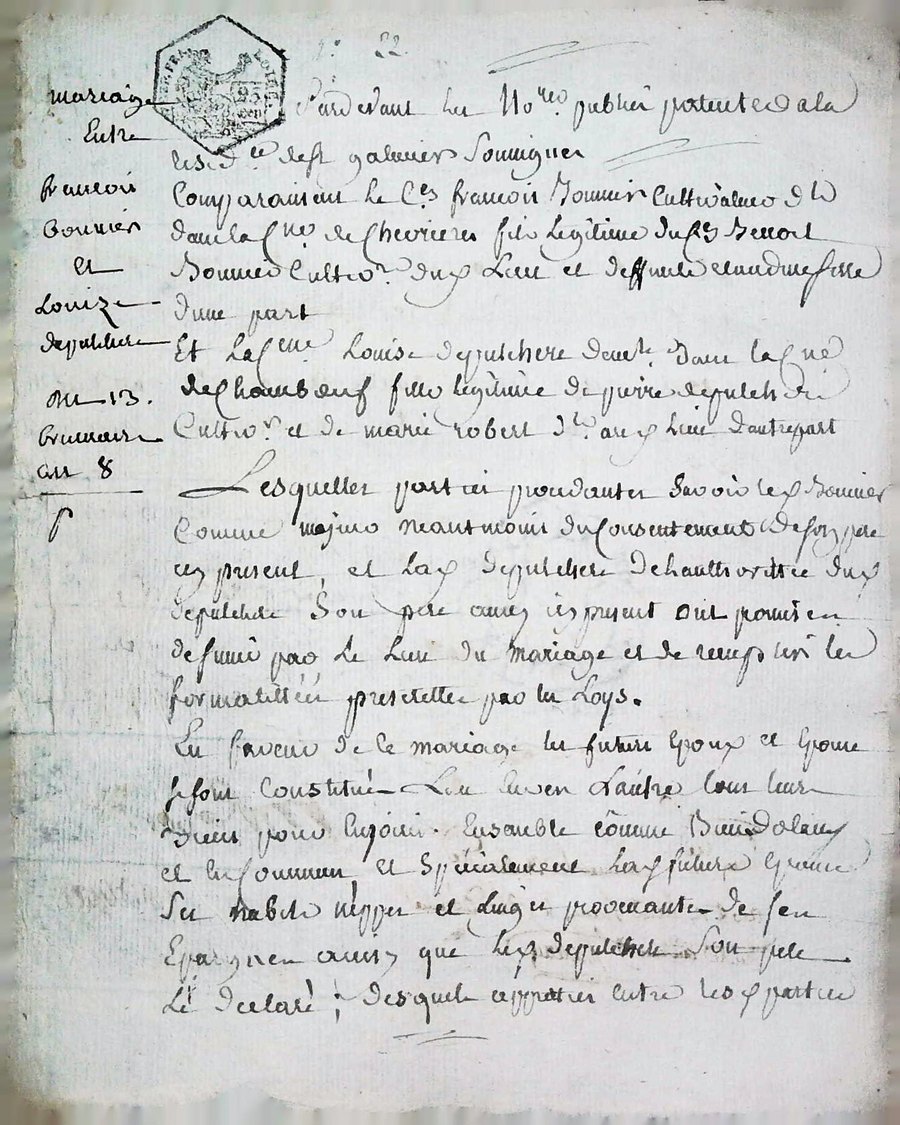 n.° 22
mariage
Entre
francois
bonnier
et
Louize
depulchere
du 13.
brumaire
an 8
Pardevant les No.res publics patentés a la
resid.ce de st galmier Soussignes
Comparaissent le C.en francois Bonnier Cultivateur
dans la C.ne de Chevrieres fils legitime du C.en Benoit
Bonnier Cultiv.r du Lieu et deffunte
d'une part
Et La C.enne Louise depulchere dem.te dans la C.ne
de Chambœuf fille legitime de pierre depulchere
Cultiv.r et de marie robert d'autre part
Lesquelles parties procedantes Savoir le Bonnier
Comme majeur neantmoins du Consentement de son pere
icy present, et La depulchere de Lauthorittée du
depulchere Son pere aussy icy present ont promis
de sunir par le Lien du mariage et de remplir les
formalittées prescrittes par les Loys.
En faveur de ce mariage les futurs Epoux et Epouse
se sont Constitués Lun Envers L'autre tous leurs
Droits pour En jouir Ensemble comme
et En Commun et Spécialement La future Epouse
Ses habits nippes et Linges provenants de ses
Epargnes ainsy que Le depulchere Son pere
L'a declaré; desquels apprétiés Entre les parties